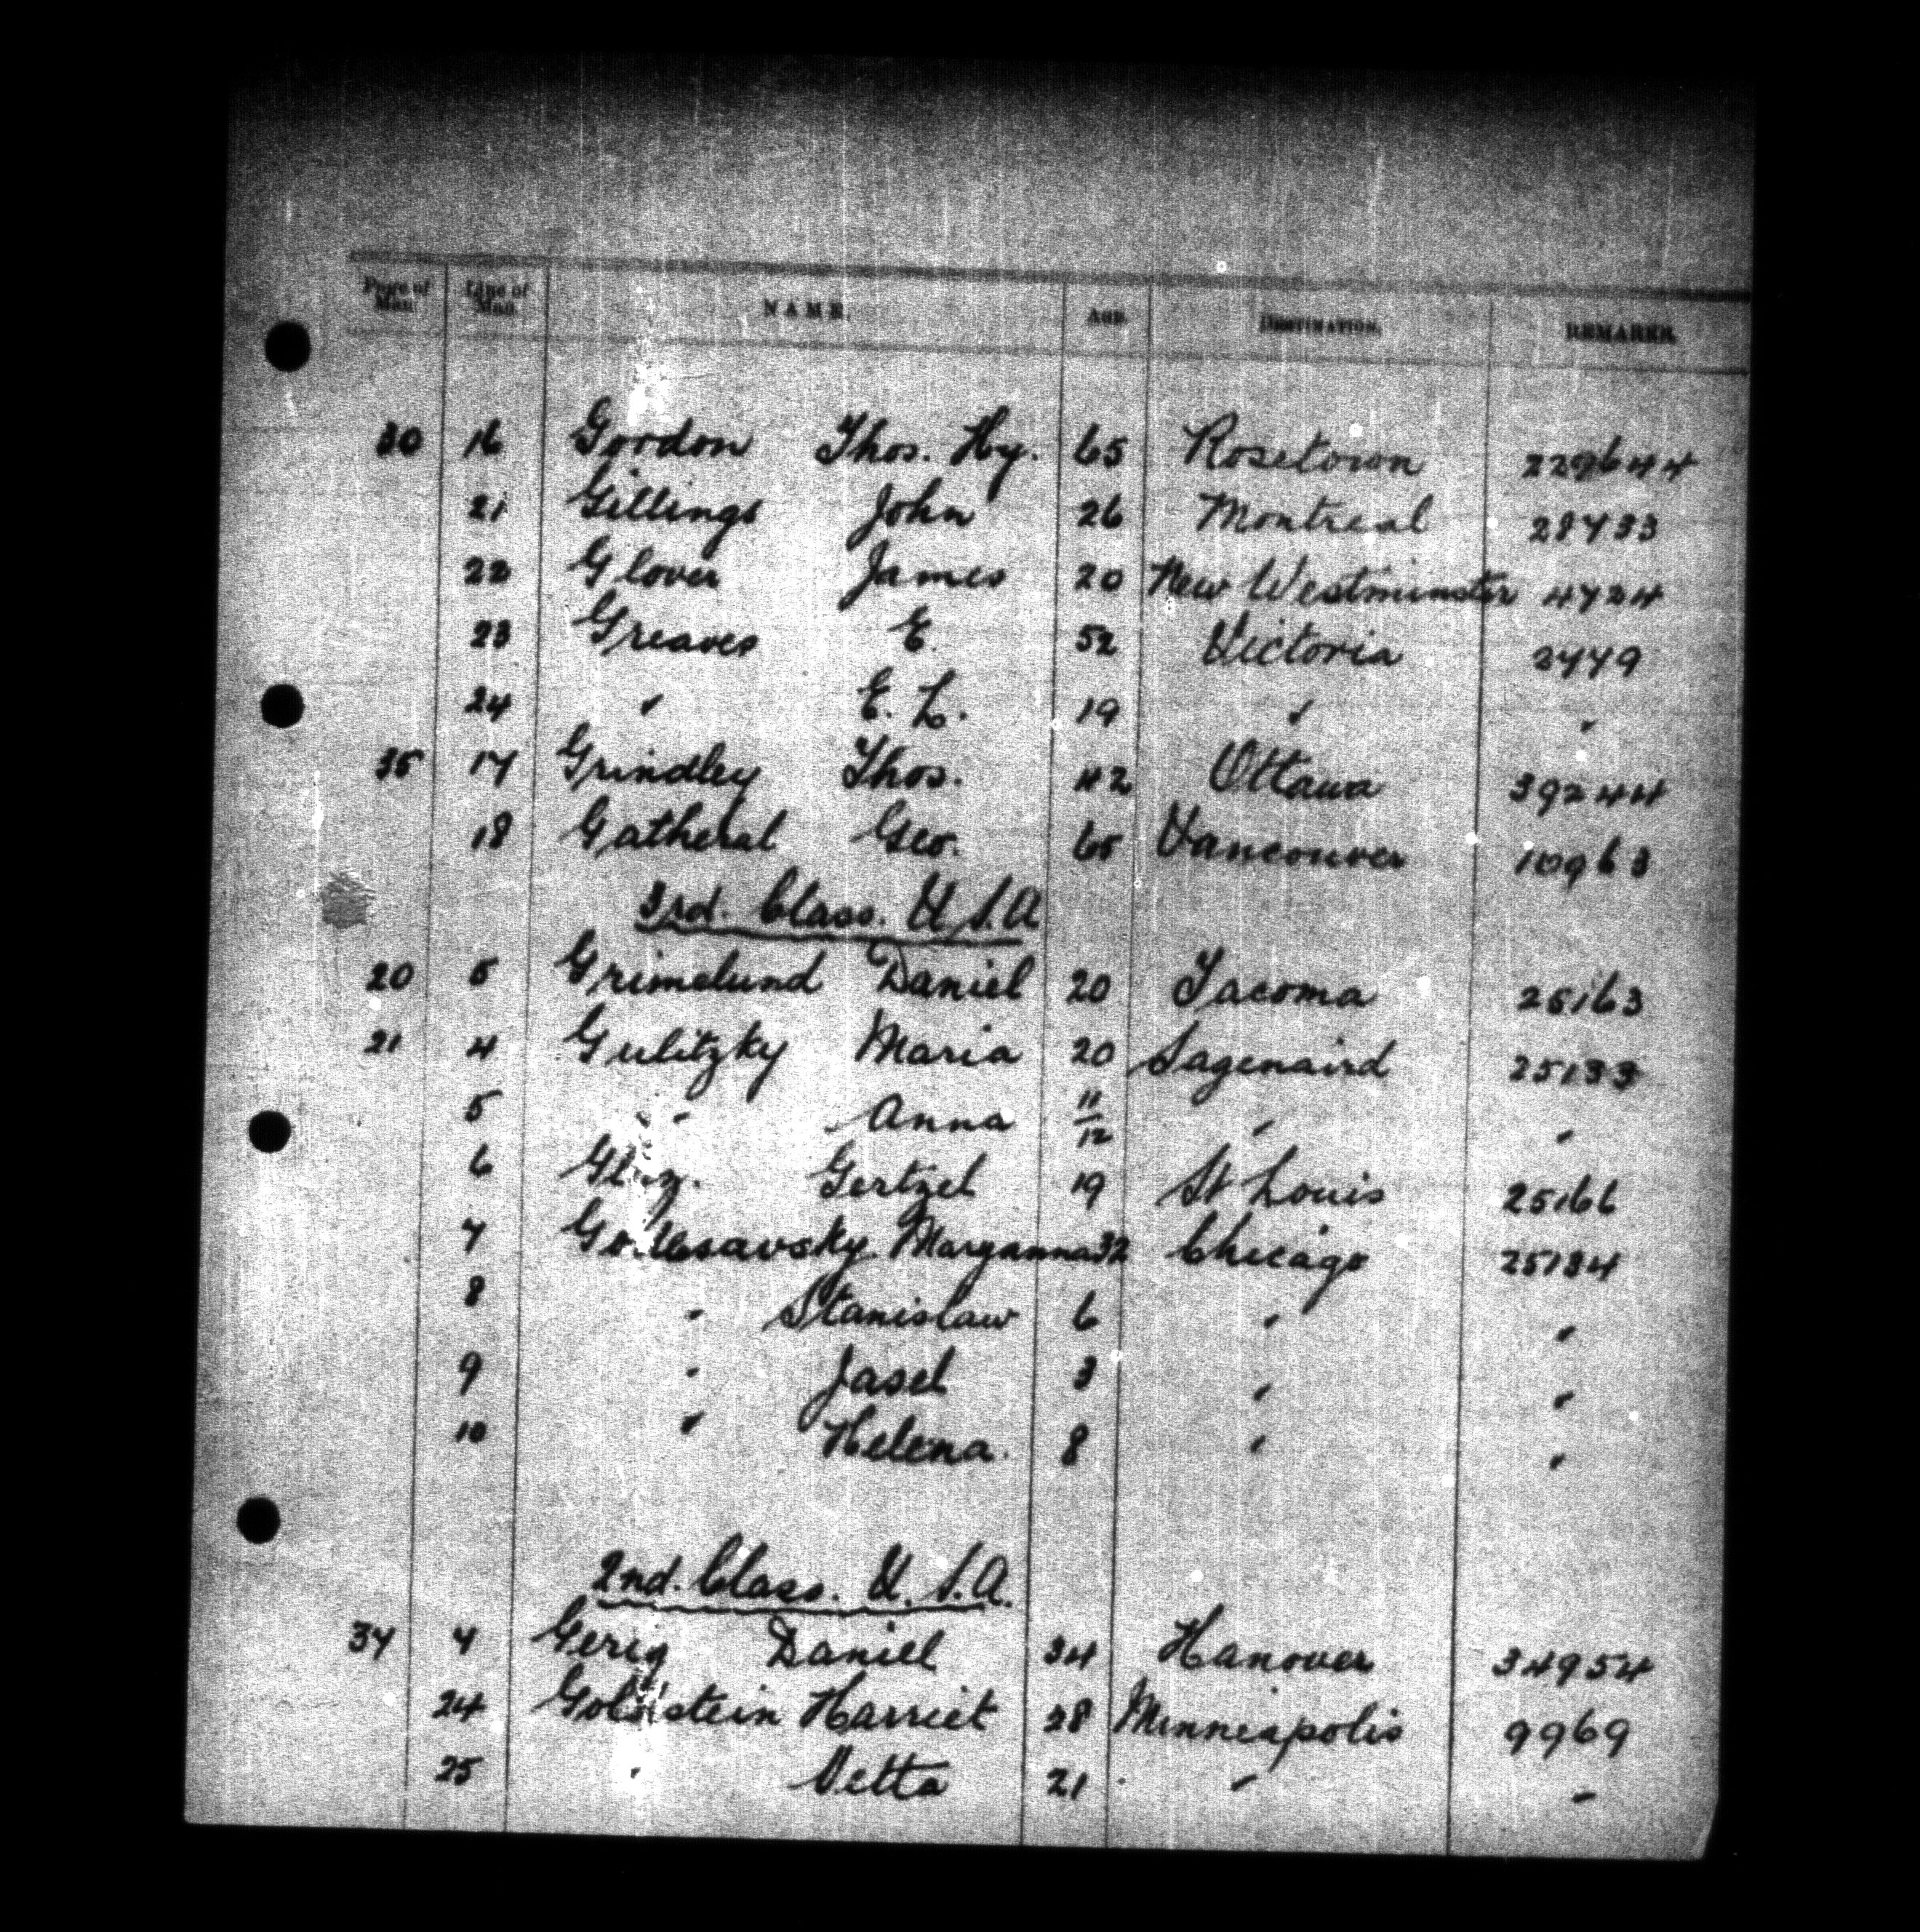 Page of Man. Line of Man. NAME. AGE. DESTINATION. REMARKS.
30 16 Gordon Thos. Hy. 65 Rosetown 229644
21 Gittings John 26 Montreal 28733
22 Glover James 20 New Westminster 4724
23 Greaves E. 52 Victoria 2779
24 " E. L. 19 " "
35 17 Grindley Thos. 42 Ottawa 39244
18 Gatheral Geo. Vancouver 10963
3rd. Class. U.S.A
20 5 Grimelund Daniel 20 Tacoma 25163
21 4 Gulitzky Maria 20 Sagenaird 25133
5 " Anna 11/12 " "
6 Gertzel 19 St Louis 25166
7 Maryanna 32 Chicago 25134
8 " Stanislaw 6 " "
9 " Jasel 3 " "
10 " Helena. 8 " "
2nd. Class. U.S.A.
37 7 Gerig Daniel 34 Hanover 34954
24 Goldstein Harriet 28 Minneapolis 9969
25 " Netta 21 " "